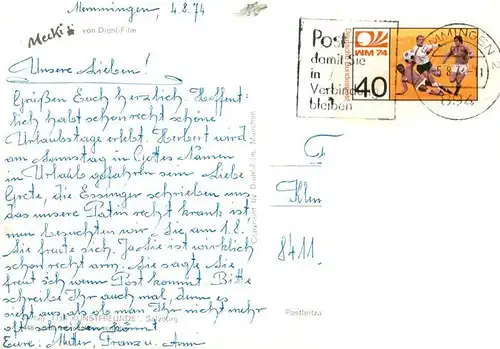 Memmingen, 4.8.74
Mecki von Diehl-Film
Unsere Lieben!
Grüßen Euch herzlich. Hoffent-
lich habt schon recht schöne
Urlaubstage erlebt. Herbert wird
am Samstag in Gottes Namen
in Urlaub gefahren sein. Liebe
Grete, die Essinger schrieben uns
das unsere Patin recht krank ist
nun besuchten wir Sie am 1.8.
Sie freute sich. Ja Sie ist wirklich
schon recht arm. Sie sagte Sie
freut sich wenn Post kommt. Bitte
schreibe Ihr auch mal, denn es
sieht aus als ob man Ihr nicht mehr
oft schreiben könnt
Eure: Mutter, Franz u. Anni
KUNSTFREUNDE Salzburg
Copyright by Diehl-Film, München
Post
damit Sie
in
Verbindung
bleiben
Deutsche Bundespost
WM 74
40
MMINGEN 2
Fr
Klen
8411
Postleitza